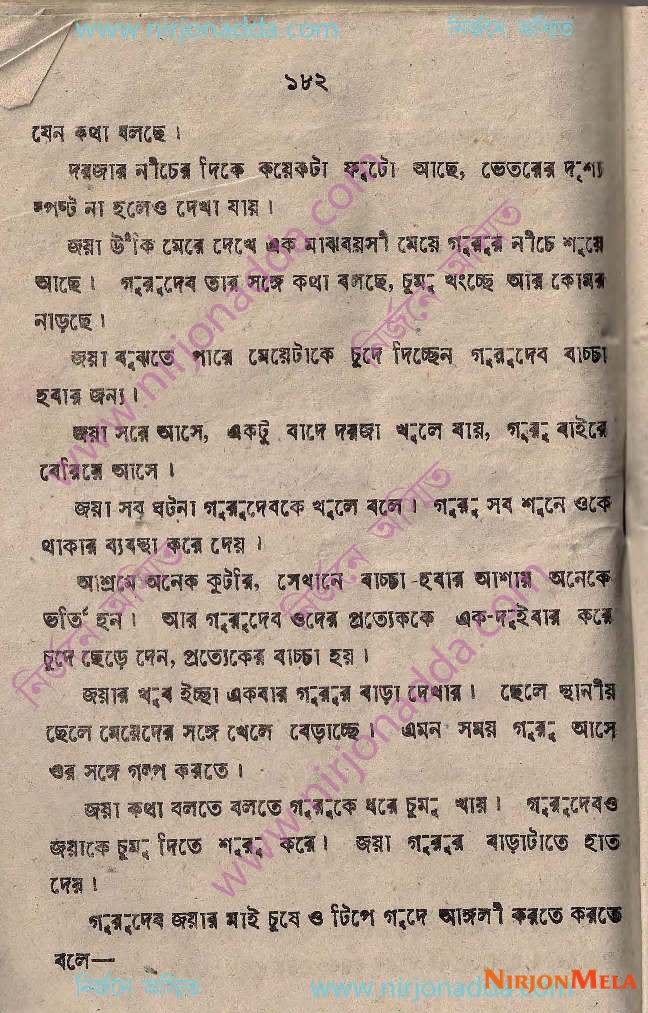 www.nirjonadda.com নির্জনে অমিত
১৮২
যেন কথা বলছে ।
দরজার নীচের দিকে কয়েকটা ফুটো আছে, ভেতরের দৃশ্য
স্পষ্ট না হলেও দেখা যায় ।
জয়া উঁকি মেরে দেখে এক মাঝবয়সী মেয়ে গুরুর নীচে শুয়ে
আছে । গুরুদেব তার সঙ্গে কথা বলছে, চুমু খাচ্ছে আর কোমর
নাড়ছে ।
জয়া বুঝতে পারে মেয়েটাকে চুদে দিচ্ছেন গুরুদেব বাচ্চা
হবার জন্য ।
জয়া সরে আসে, একটু বাদে দরজা খুলে যায়, গুরু বাইরে
বেরিয়ে আসে ।
জয়া সব ঘটনা গুরুদেবকে খুলে বলে । গুরু সব শুনে ওকে
থাকার ব্যবস্থা করে দেয় ।
আশ্রমে অনেক কুটরি, সেখানে বাচ্চা হবার আশায় অনেকে
ভর্তি হন । আর গুরুদেব ওদের প্রত্যেককে এক-দুইবার করে
চুদে ছেড়ে দেন, প্রত্যেকের বাচ্চা হয় ।
জয়ার খুব ইচ্ছা একবার গুরুর বাড়া দেখার । ছেলে স্থানীয়
ছেলে মেয়েদের সঙ্গে খেলে বেড়াচ্ছে । এমন সময় গুরু আসে
ওর সঙ্গে গল্প করতে ।
জয়া কথা বলতে বলতে গুরুকে ধরে চুমু খায় । গুরুদেবও
জয়াকে চুমু দিতে শুরু করে । জয়া গুরুর বাড়াটাতে হাত
দেয় ।
গুরুদেব জয়ার মাই চুষে ও টিপে গুদে আঙ্গলী করতে করতে
বলে—
নির্জনে অমিত www.nirjonadda.com
NIRJONMELA